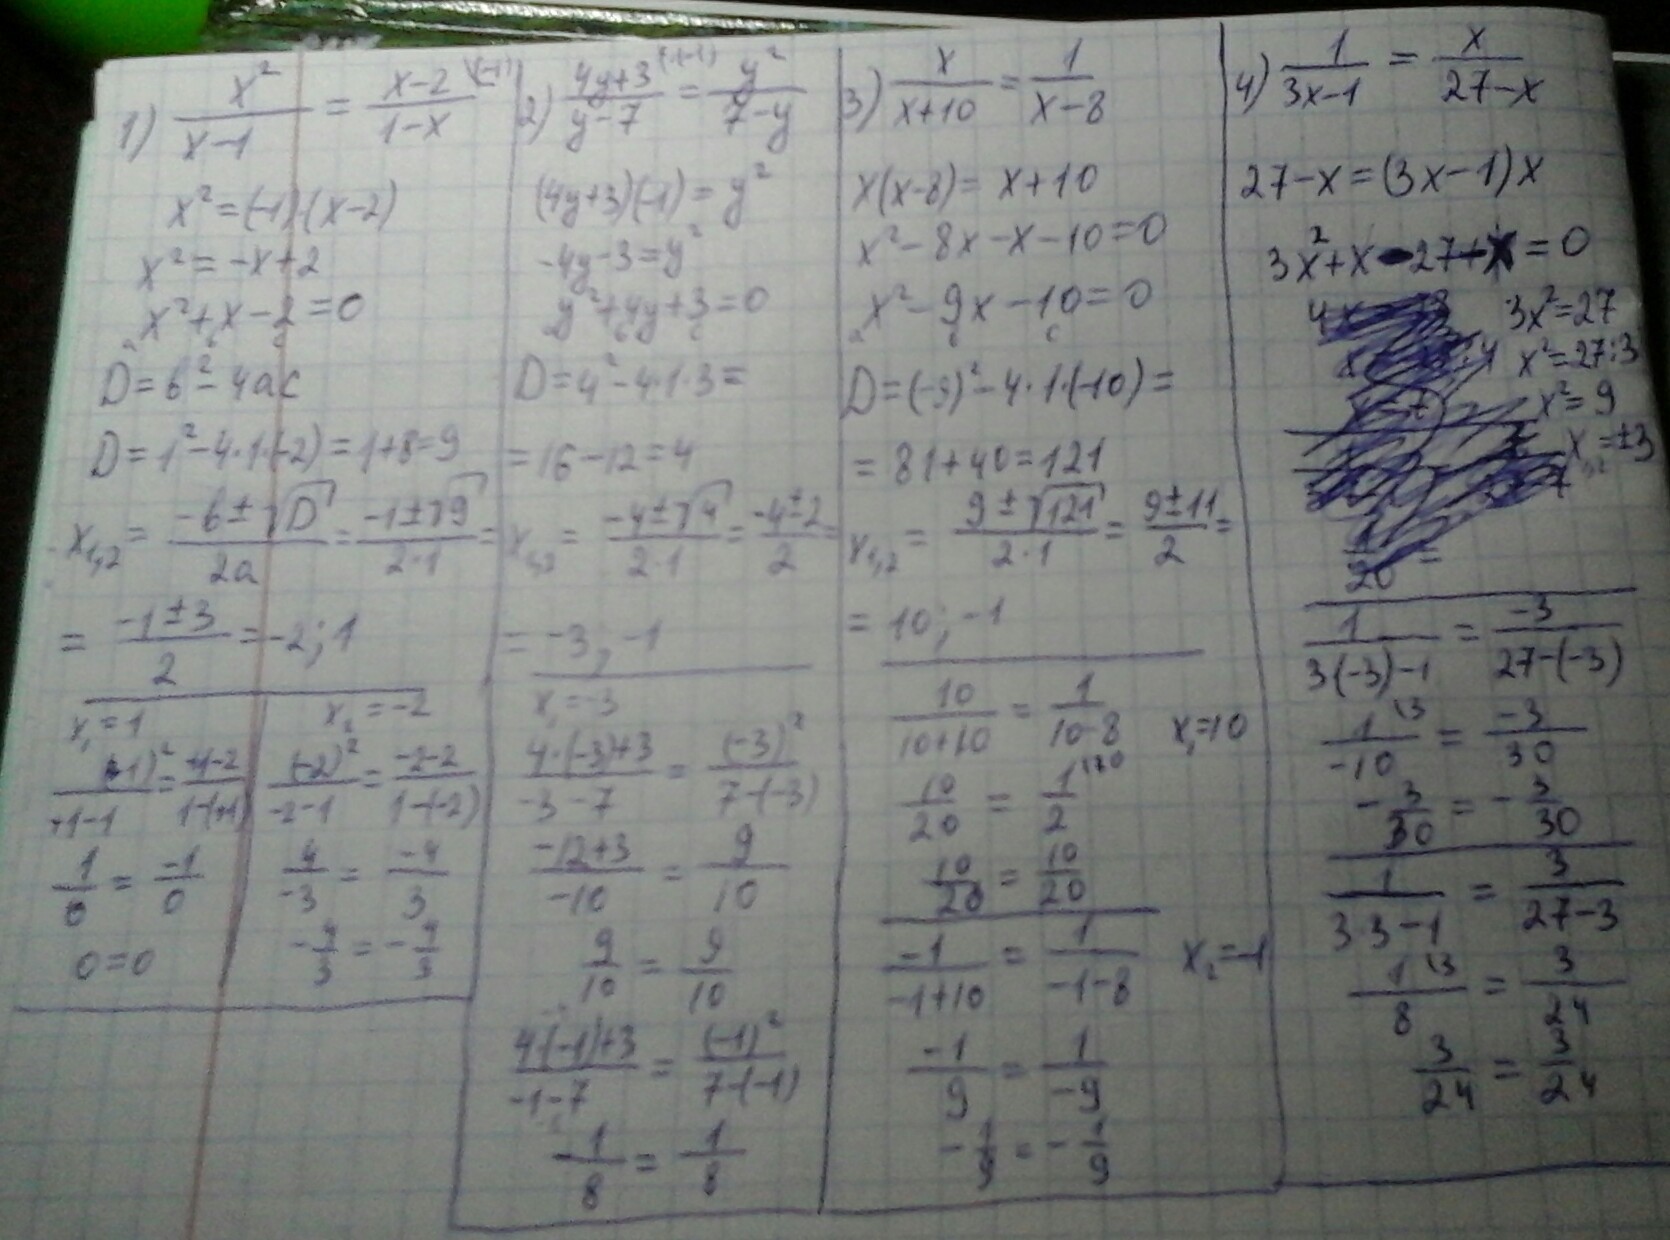 1) x²/(x-1) = (x-2)/(1-x) \(-1)
x² = (-1)·(x-2)
x² = -x+2
x²+x-2=0
a b c
D=b²-4ac
D=1²-4·1·(-2)=1+8=9
x₁,₂ = (-b±√D)/2a = (-1±√9)/(2·1) =
= (-1±3)/2 = -2; 1
x₁=1
(1)²/(+1-1) = (+1-2)/(1-(+1))
1/0 = -1/0
0=0
x₂=-2
(-2)²/(-2-1) = (-2-2)/(1-(-2))
4/-3 = -4/3
-4/3 = -4/3
2) (4y+3)/(y-7) \(-1) = y²/(7-y)
(4y+3)(-1)=y²
-4y-3=y²
y²+4y+3=0
a b c
D=4²-4·1·3=
=16-12=4
x₁,₂ = (-4±√4)/(2·1) = (-4±2)/2 =
= -3; -1
x₁=-3
(4·(-3)+3)/(-3-7) = (-3)²/(7-(-3))
(-12+3)/-10 = 9/10
9/10 = 9/10
(4(-1)+3)/(-1-7) = (-1)²/(7-(-1))
1/8 = 1/8
3) x/(x+10) = 1/(x-8)
x(x-8)=x+10
x²-8x-x-10=0
x²-9x-10=0
a b c
D=(-9)²-4·1·(-10)=
=81+40=121
x₁,₂ = (9±√121)/(2·1) = (9±11)/2 =
= 10; -1
10/(10+10) = 1/(10-8) x₁=10
10/20 = 1/2 \10
10/20 = 10/20
-1/(-1+10) = 1/(-1-8) x₂=-1
-1/9 = 1/-9
-1/9 = -1/9
4) 1/(3x-1) = x/(27-x)
27-x=(3x-1)x
3x²+x-27-x=0
3x²=27
x²=27:3
x²=9
x₁,₂=±3
1/20 =
1/(3(-3)-1) = -3/(27-(-3))
1/-10 \3 = -3/30
-3/30 = -3/30
1/(3·3-1) = 3/(27-3)
1/8 \3 = 3/24
3/24 = 3/24